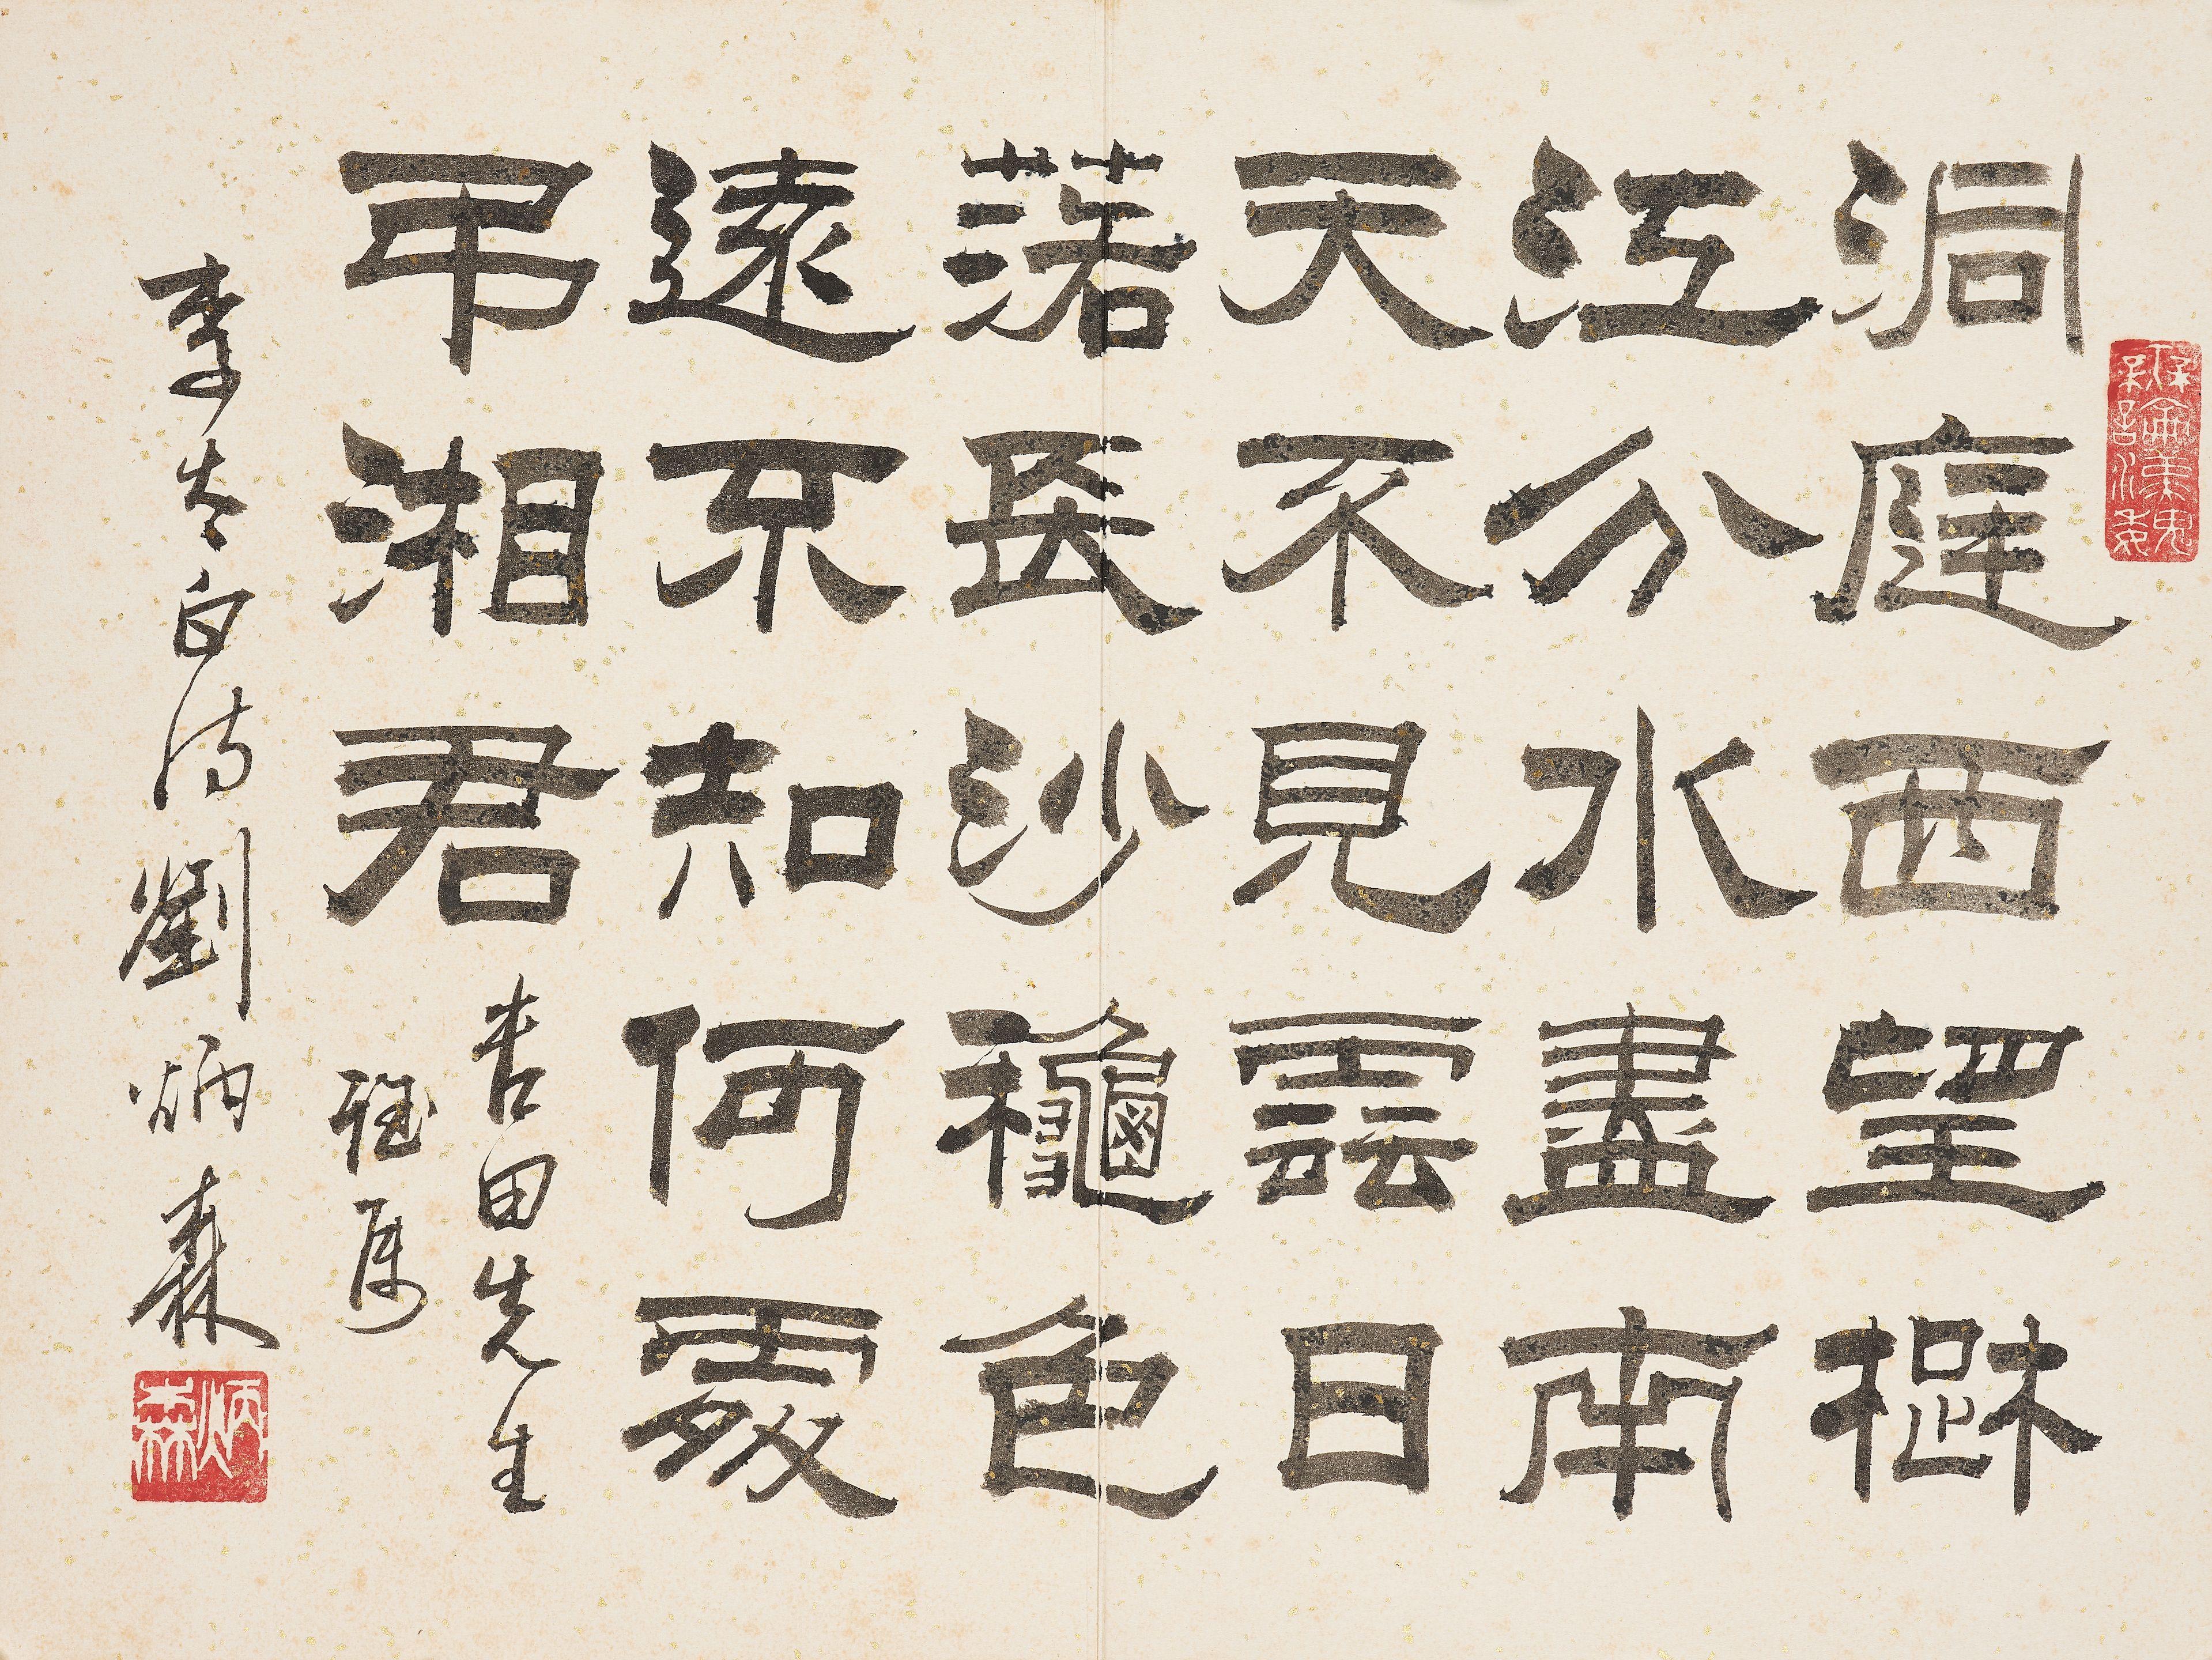 洞庭西望楚
江分水盡南
天不見雲日
落長沙龝色
遠不知何處
弔湘君
田先生
雅属
李太白诗劉炳森
炳森